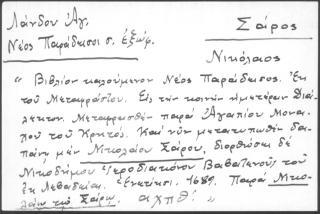 Λάνδου Ἀγ.
Νέος Παράδεισος σ. ἐξώφ.
Σάρος
Νικόλαος
" Βιβλίον καλούμενον Νέος Παράδεισος. Ἐκ
τοῦ Μεταφράστου. Εἰς τὴν κοινὴν ἡμετέραν Διά-
λεκτον. Μεταφρασθὲν παρὰ Ἀγαπίου Μονα-
χοῦ τοῦ Κρητός. Καὶ νῦν μετατυπωθὲν δα-
πάνῃ μὲν Νικολάου Σάρου, διορθώσει δὲ
Νικοδήμου Ἱεροδιακόνου τοῦ
ἐκ Λεβαδείας. Ἐνετίησι. 1689. Παρὰ Νικο-
λάῳ τῷ Σάρῳ. αχπθ΄. "